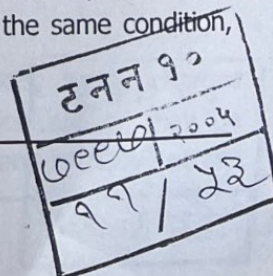 the same condition,
टनन १०
७९९७/२००५
११ / ५३